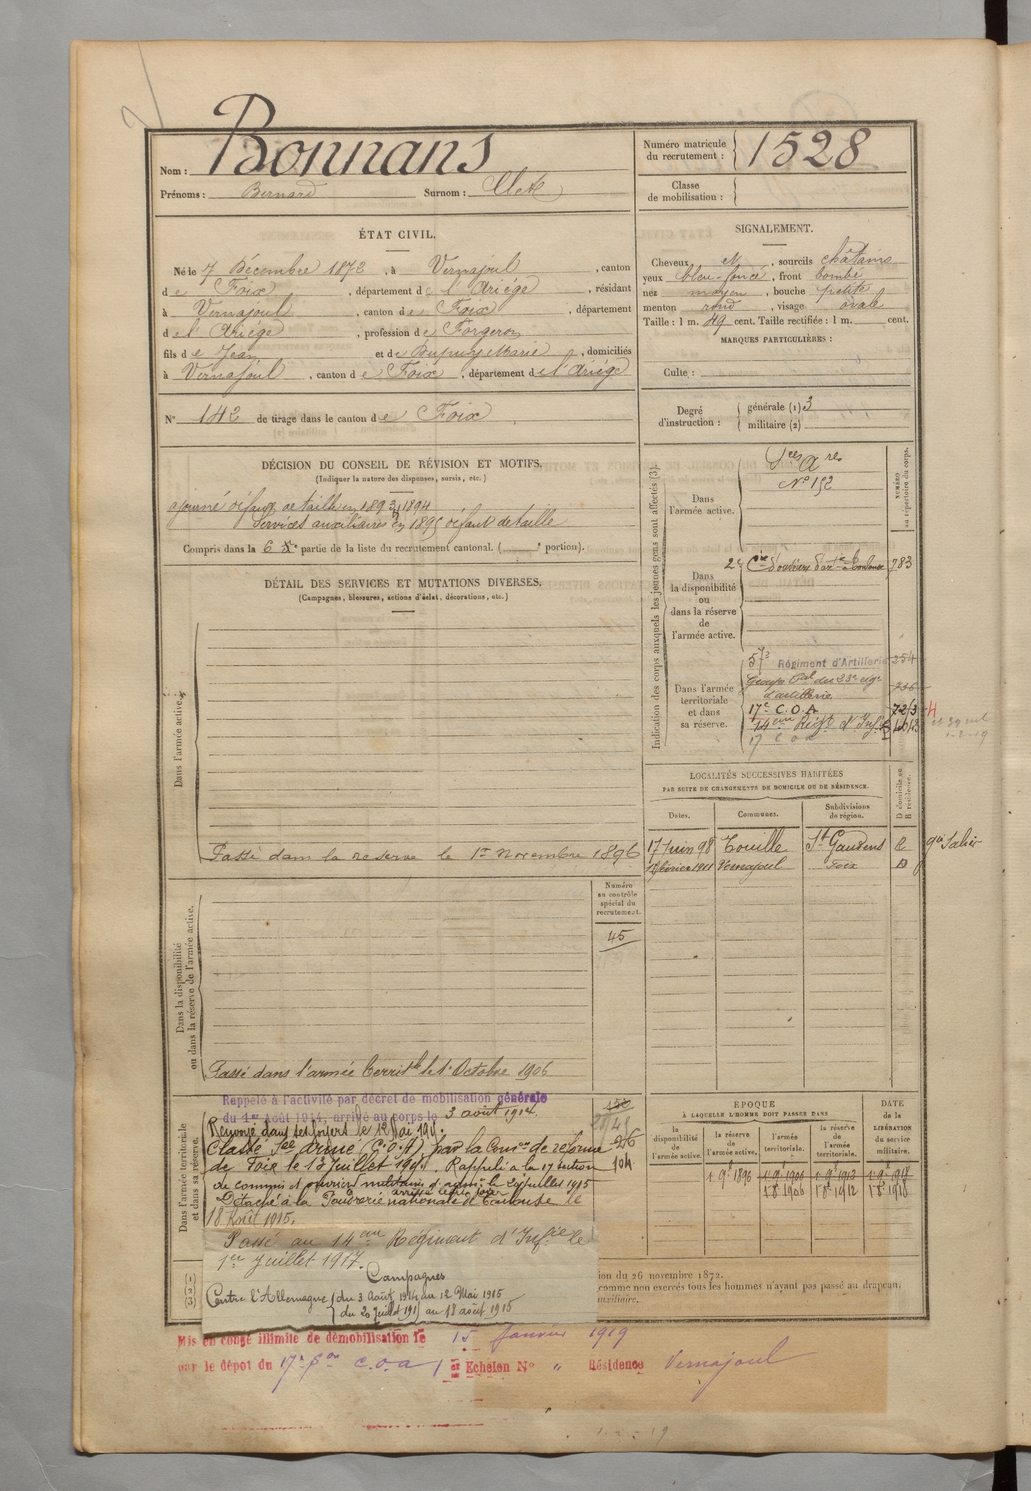 Nom : Bonnans
Prénoms : Bernard Surnom :
Numéro matricule du recrutement : 1528
Classe de mobilisation :
ÉTAT CIVIL.
Né le 7 Décembre 1872, à Vernajoul, canton
de Foix, département de l'Ariège, résidant
à Vernajoul, canton de Foix, département
de l'Ariège, profession de Forgeron
fils de Jean et de Dupuy Marie, domiciliés
à Vernajoul, canton de Foix, département de l'Ariège
N° 142 de tirage dans le canton de Foix
SIGNALEMENT.
Cheveux et, sourcils châtains
yeux bleu-foncé, front bombé
nez moyen, bouche petite
menton rond, visage ovale
Taille : 1 m. 49 cent. Taille rectifiée : 1 m. cent.
MARQUES PARTICULIÈRES :
Culte :
Degré d'instruction : générale (1) 3
militaire (2)
DÉCISION DU CONSEIL DE RÉVISION ET MOTIFS.
(Indiquer la nature des dispenses, sursis, etc.)
ajourné défaut de taille en 1893, 1894
Services auxiliaires en 1895 défaut de taille
Compris dans la 6e partie de la liste du recrutement cantonal. ( e portion).
DÉTAIL DES SERVICES ET MUTATIONS DIVERSES.
(Campagnes, blessures, actions d'éclat, décorations, etc.)
Dans l'armée active.
Passé dans la réserve le 1er Novembre 1896
Dans la disponibilité ou dans la réserve de l'armée active.
Numéro au contrôle spécial du recrutement.
45
Passé dans l'armée territle le 1er Octobre 1906
Dans l'armée territoriale et dans sa réserve.
Rappelé à l'activité par décret de mobilisation générale
du 1er Août 1914, arrivé au corps le 3 août 1914.
Renvoyé dans ses foyers le 12 Mai 191
Classé Sce armé (C.O.A) par la Comon de réforme
de Foix le 13 Juillet 191 . Rappelé à la 17 section
de commis et ouvriers militaires d'admin le 20 juillet 1915
arrivé le dit jour
Détaché à la Poudrerie nationale de Toulouse le
18 Août 1915.
Passé au 14eme Régiment d'Infrie le
1er Juillet 1917.
Campagnes
Contre l'Allemagne du 3 Août 1914 au 12 Mai 1915
du 20 Juillet 191 au 18 août 1915
104
Mis en congé illimité de démobilisation le 15 Janvier 1919
par le dépôt du 17e Son C.O.A 1er Echelon N° " Résidence Vernajoul
Indication des corps auxquels les jeunes gens sont affectés (3).
NUMÉRO au répertoire du corps.
Dans l'armée active.
Sces Ares
N° 152
Dans la disponibilité ou dans la réserve de l'armée active.
2e Cie d'ouvriers d'artie à Toulouse 783
Dans l'armée territoriale et dans sa réserve.
57e Régiment d'Artillerie 254
Groupe Tal du 23e rég
d'artillerie
17e C.O.A
14eme Régt d'Inf
17 C O A
LOCALITÉS SUCCESSIVES HABITÉES
PAR SUITE DE CHANGEMENTS DE DOMICILE OU DE RÉSIDENCE.
Dates. Communes. Subdivisions de région. D domicile ou R résidence.
17 Juin 98 Touille St Gaudens
février 1911 Vernajoul Foix D
ÉPOQUE
À LAQUELLE L'HOMME DOIT PASSER DANS
DATE de la LIBÉRATION du service militaire.
la disponibilité de l'armée active.
la réserve de l'armée active.
l'armée territoriale.
la réserve de l'armée territoriale.
1. 9e 1896 1. 9e 1906 1. 9e 1912 1. 9e 1918
1 8e 1906 1 8e 1912 1 8e 1918
ion du 26 novembre 1872.
comme non exercés tous les hommes n'ayant pas passé au drapeau.
uxiliaire.